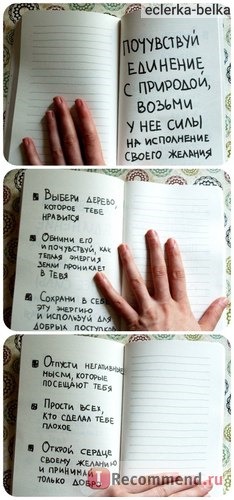 eclerka-belka
ПОЧУВСТВУЙ
ЕДИНЕНИЕ
С ПРИРОДОЙ,
ВОЗЬМИ
У НЕЕ СИЛЫ
НА ИСПОЛНЕНИЕ
СВОЕГО ЖЕЛАНИЯ
ВЫБЕРИ ДЕРЕВО,
КОТОРОЕ ТЕБЕ
НРАВИТСЯ
ОБНИМИ ЕГО
И ПОЧУВСТВУЙ, КАК
ТЕПЛАЯ ЭНЕРГИЯ
ЗЕМЛИ ПРОНИКАЕТ
В ТЕБЯ
СОХРАНИ В СЕБЕ
ЭТУ ЭНЕРГИЮ
И ИСПОЛЬЗУЙ ДЛЯ
ДОБРЫХ ПОСТУПКОВ
ОТПУСТИ НЕГАТИВНЫЕ
МЫСЛИ, КОТОРЫЕ
ПОСЕЩАЮТ ТЕБЯ
ПРОСТИ ВСЕХ,
КТО СДЕЛАЛ ТЕБЕ
ПЛОХОЕ
ОТКРОЙ СЕРДЦЕ
СВОЕМУ ЖЕЛАНИЮ
И ПРИНИМАЙ
ТОЛЬКО ДОБРО
IRecommend.ru